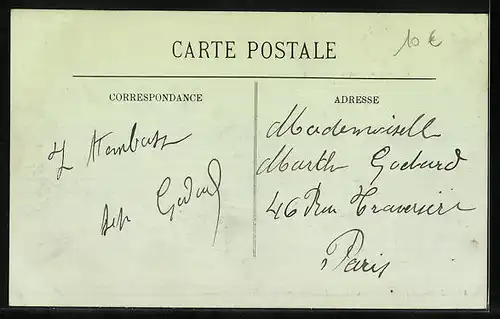 10 €
CARTE POSTALE
CORRESPONDANCE
ADRESSE
Mademoiselle
Marthe Godard
46 Rue Traversière
Paris
Godard